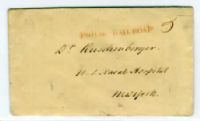 RAILROAD
5
Dr Ruschenberger.
U.S. Naval Hospital
New York.